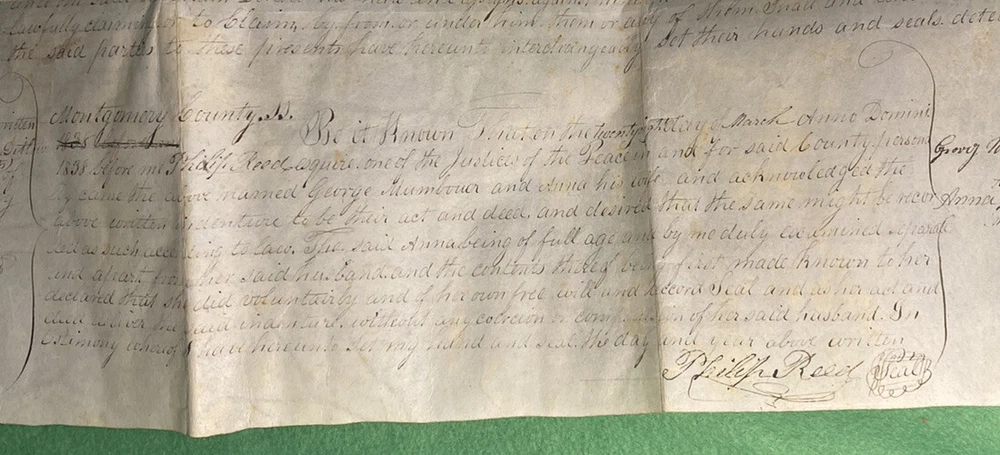 lawfully claiming or to Claim, by from or under him, them or any of them Shall and
the said parties to these presents have hereunto interchangeably set their hands and seals,
Montgomery County Ss.
Be it Known That on the twenty day of March Anno Domini
1838 before me Philip Reed esquire one of the Justices of the Peace in and for said County person
ly came the above named George Mumbouer and Anna his wife and acknowledged the
above written indenture to be their act and deed, and desired that the same might be recor
ded as such according to law. The said Anna being of full age and by me duly examined separate
and apart from her said husband and the contents thereof being first made known to her
declared that she did voluntarily and of her own free will and accord Seal and as her act and
deed deliver the said indenture, without any coercion or compulsion of her said husband. In
testimony whereof I have hereunto Set my hand and seal the day and year above written
Philip Reed
Seal
written
Georg
Anna